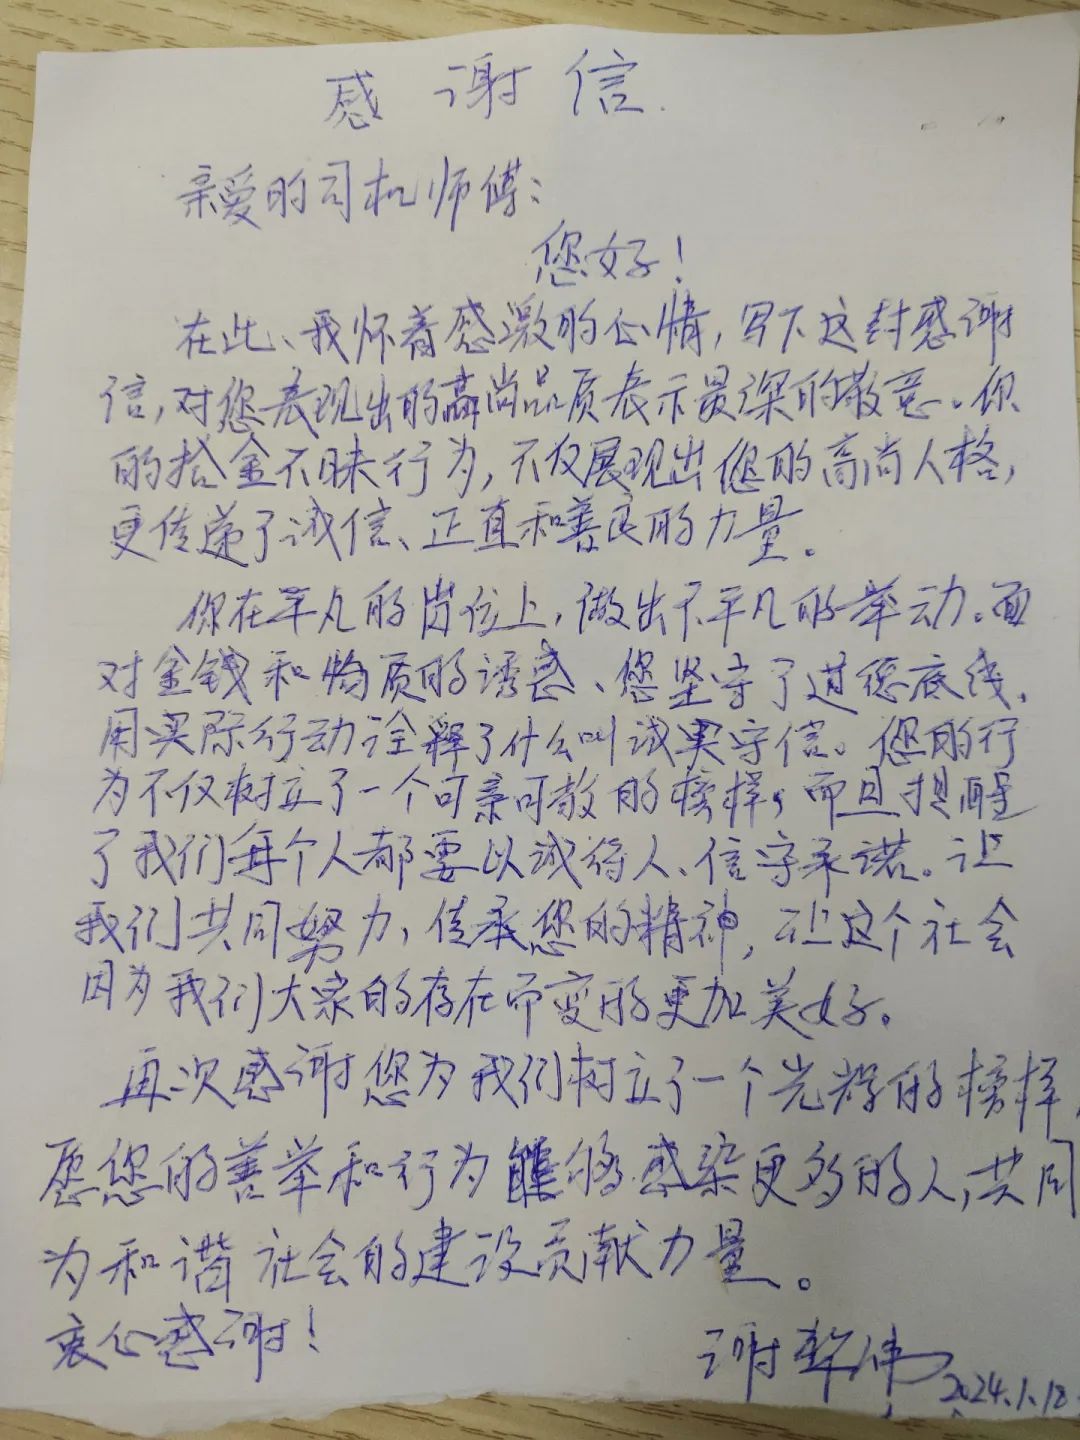 感谢信.
亲爱的司机师傅:
您好!
在此、我怀着感激的心情,写下这封感谢
信,对您表现出的高尚品质表示最深的敬意。你
的拾金不昧行为,不仅展现出您的高尚人格,
更传递了诚信、正直和善良的力量。
你在平凡的岗位上,做出不平凡的举动。面
对金钱和物质的诱惑、您坚守了道德底线,
用实际行动诠释了什么叫诚实守信。您的行
为不仅树立了一个可亲可敬的榜样,而且提醒
了我们每个人都要以诚待人、信守承诺。让
我们共同努力,传承您的精神,让这个社会
因为我们大家的存在而变的更加美好。
再次感谢您为我们树立了一个光辉的榜样,
愿您的善举和行为能够感染更多的人,共同
为和谐社会的建设贡献力量。
衷心感谢!
谢 伟
2024.1.18